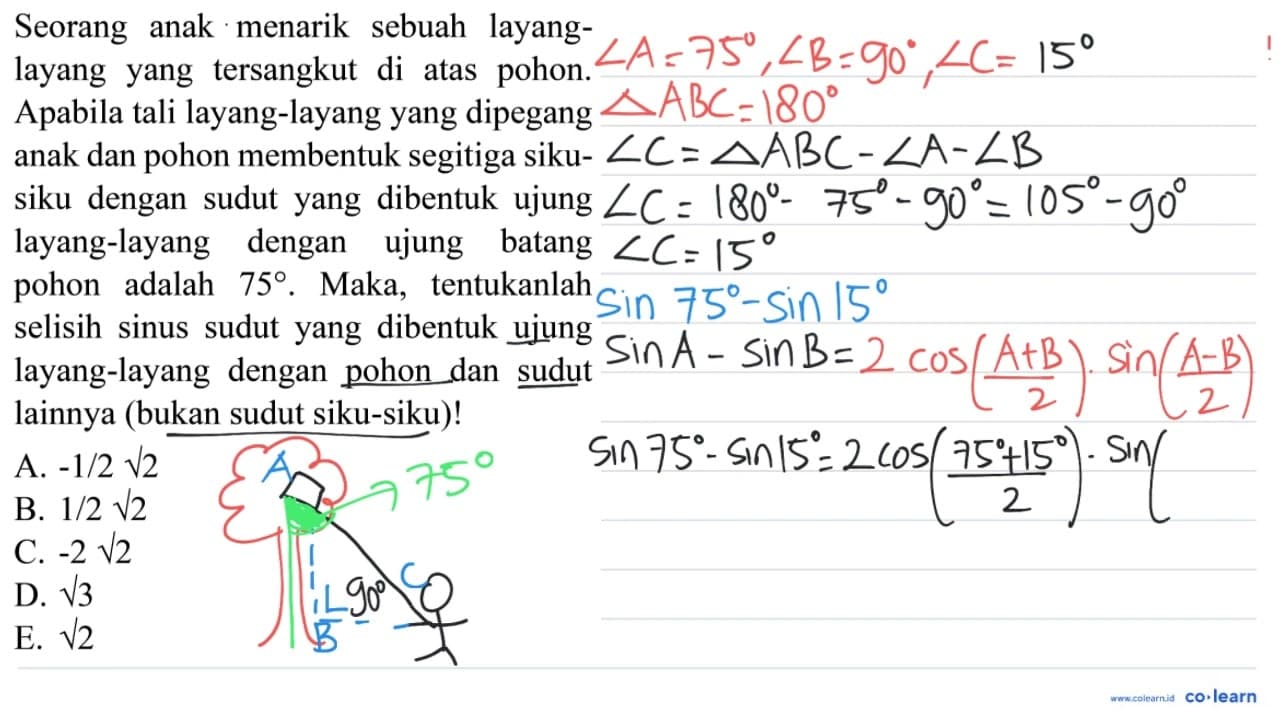 Seorang anak menarik sebuah layang-
layang yang tersangkut di atas pohon.
Apabila tali layang-layang yang dipegang
anak dan pohon membentuk segitiga siku-
siku dengan sudut yang dibentuk ujung
layang-layang dengan ujung batang
pohon adalah 75°. Maka, tentukanlah
selisih sinus sudut yang dibentuk ujung
layang-layang dengan pohon dan sudut
lainnya (bukan sudut siku-siku)!
A. -1/2 √2
B. 1/2 √2
C. -2 √2
D. √3
E. √2
A
75°
90°
C
B
∠A = 75°, ∠B = 90°, ∠C = 15°
!
△ABC = 180°
∠C = △ABC - ∠A - ∠B
∠C = 180° - 75° - 90° = 105° - 90°
∠C = 15°
Sin 75° - Sin 15°
Sin A - Sin B = 2 cos((A+B)/2) . Sin((A-B)/2)
Sin 75° - Sin 15° = 2 cos((75°+15°)/2) . Sin(
www.colearn.id co·learn